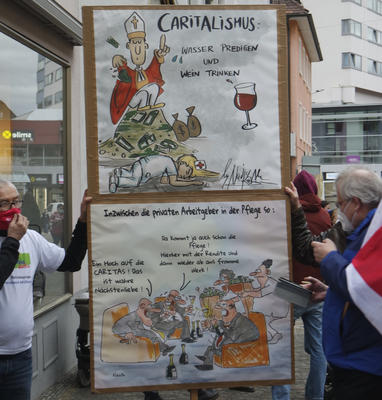 CARITALISMUS:
WASSER PREDIGEN
UND
WEIN TRINKEN
Inzwischen die privaten Arbeitgeber in der Pflege so:
Ein Hoch auf die
CARITAS! Das
ist wahre
Nächstenliebe!
Da kommt ja auch schon die
Pflege!
Hierher mit der Rendite und
dann wieder ab ans fromme
Werk!